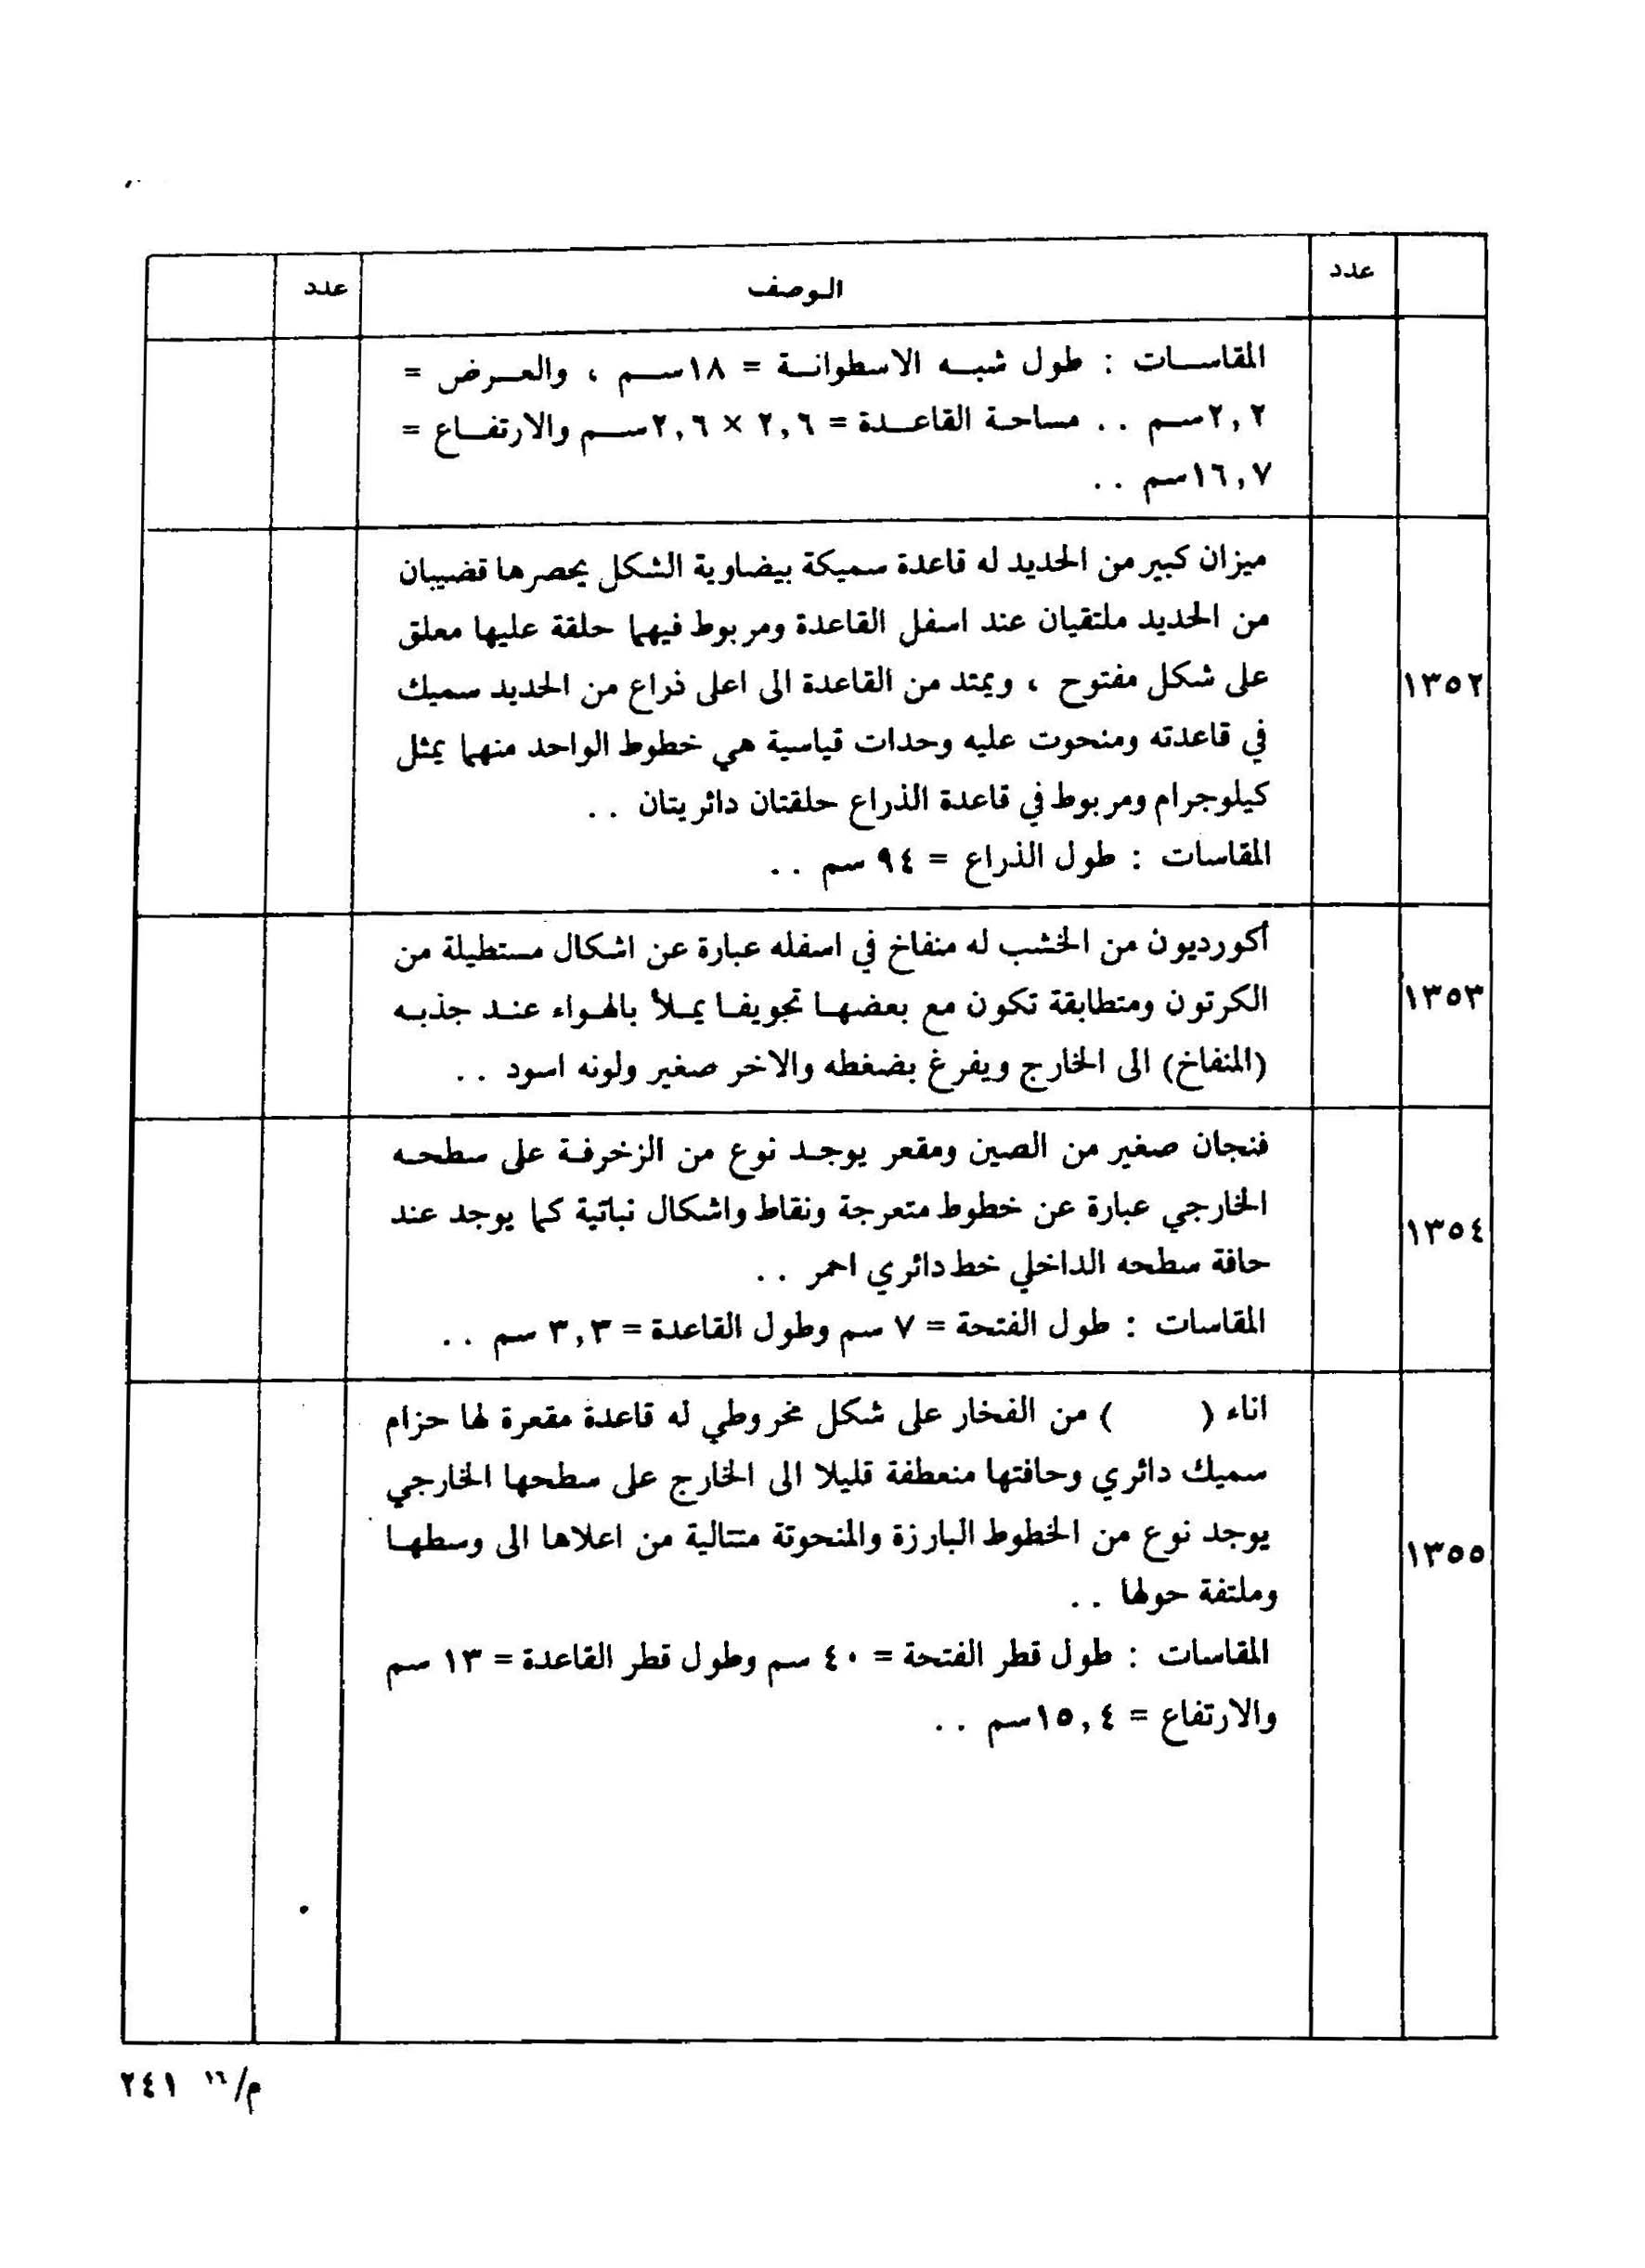 عدد الوصف عدد
المقاسات : طول شبه الاسطوانة = ١٨سم ، والعرض =
٢,٢سم .. مساحة القاعدة = ٢,٦ × ٢,٦سم والارتفاع =
١٦,٧سم ..
ميزان كبير من الحديد له قاعدة سميكة بيضاوية الشكل يحصرها قضيبان
من الحديد ملتقيان عند اسفل القاعدة ومربوط فيهما حلقة عليها معلق
١٣٥٢ على شكل مفتوح ، ويمتد من القاعدة الى اعلى ذراع من الحديد سميك
في قاعدته ومنحوت عليه وحدات قياسية هي خطوط الواحد منهما يمثل
كيلوجرام ومربوط في قاعدة الذراع حلقتان دائريتان ..
المقاسات : طول الذراع = ٩٤ سم ..
أكورديون من الخشب له منفاخ في اسفله عبارة عن اشكال مستطيلة من
١٣٥٣ الكرتون ومتطابقة تكون مع بعضها تجويفا يملأ بالهواء عند جذبه
(المنفاخ) الى الخارج ويفرغ بضغطه والاخر صغير ولونه اسود ..
فنجان صغير من الصين ومقعر يوجد نوع من الزخرفة على سطحه
١٣٥٤ الخارجي عبارة عن خطوط متعرجة ونقاط واشكال نباتية كما يوجد عند
حافة سطحه الداخلي خط دائري احمر ..
المقاسات : طول الفتحة = ٧ سم وطول القاعدة = ٣,٣ سم ..
اناء ( ) من الفخار على شكل مخروطي له قاعدة مقعرة لها حزام
سميك دائري وحافتها منعطفة قليلا الى الخارج على سطحها الخارجي
١٣٥٥ يوجد نوع من الخطوط البارزة والمنحوتة متتالية من اعلاها الى وسطها
وملتفة حولها ..
المقاسات : طول قطر الفتحة = ٤٠ سم وطول قطر القاعدة = ١٣ سم
والارتفاع = ١٥,٤سم ..
م/١٦ ٢٤١